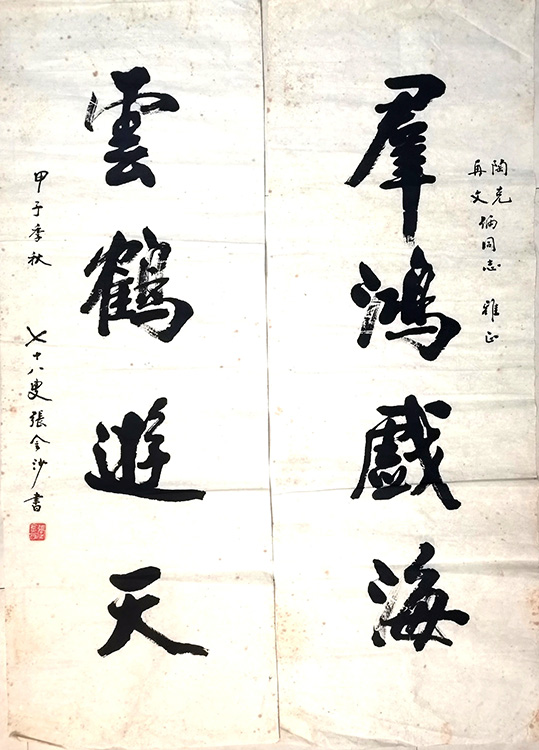 羣鴻戲海
陶克
再文
伉同志 雅正
雲鶴遊天
甲子季秋
七十八叟張金沙書